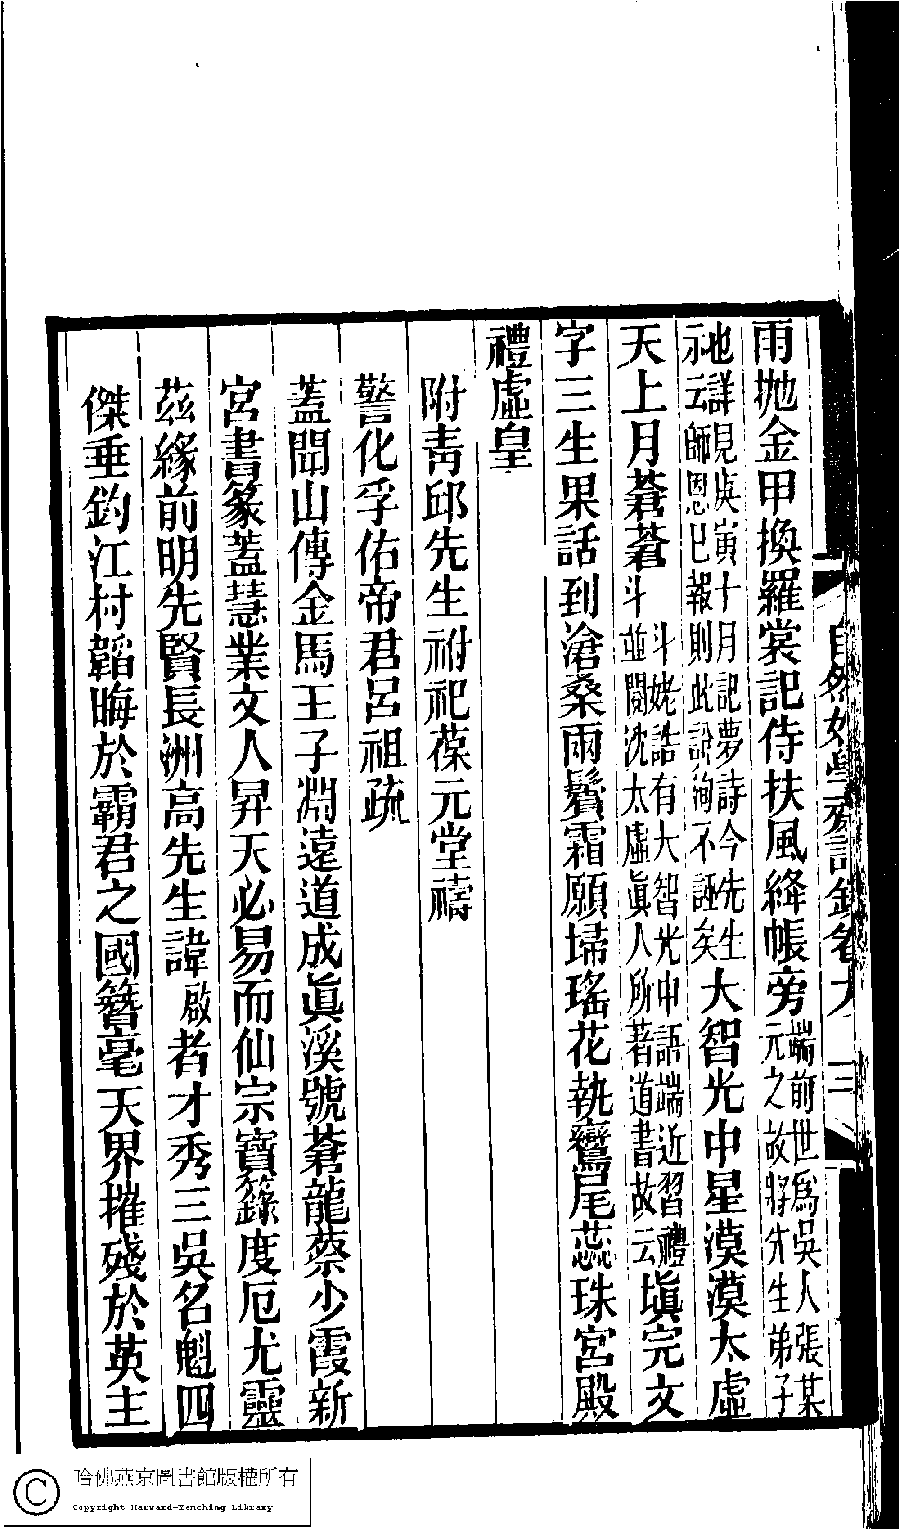 自然好學齋詩鈔卷 三
雨拋金甲換羅裳記侍扶風絳帳旁端前世爲吳人張某元之故將先生弟子
也詳見庚寅十月記夢詩今先生示云師恩已報則此說洵不誣矣大智光中星漠漠太虛
天上月蒼蒼斗姥誥有大智光中語端近習禮斗並閱沈太虛眞人所著道書故云塡完文
字三生果話到滄桑兩鬢霜願埽瑤花執鸞尾蕊珠宮殿
禮虛皇
附青邱先生祔祀葆元堂禱
警化孚佑帝君呂祖疏
蓋聞山傳金馬王子淵遠道成眞溪號蒼龍蔡少霞新
宮書篆蓋慧業文人昇天必易而仙宗寶籙度厄尤靈
茲緣前明先賢長洲高先生諱啟者才秀三吳名魁四
傑垂釣江村韜晦於霸君之國簪毫天界摧殘於英主
哈佛燕京圖書館版權所有
Copyright Harvard-Yenching Library